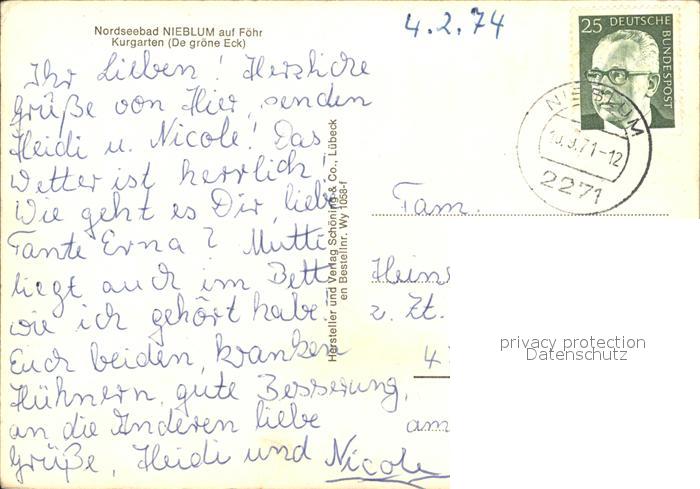 Nordseebad NIEBLUM auf Föhr
Kurgarten (De gröne Eck)
4.2.74
25 DEUTSCHE
BUNDESPOST
NIEBLUM
-12
2271
Ihr Lieben! Herzliche
Grüße von Hier, senden
Heidi u. Nicole! Das
Wetter ist herrlich!
Wie geht es Dir, liebe
Tante Erna? Mutti
liegt auch im Bett
wie ich gehört habe!
Euch beiden, kranken
Hühnern, gute Besserung,
an die Anderen liebe
Grüße, Heidi und Nicole
Hersteller und Verlag Schöning & Co., Lübeck
en Bestellnr. Wy 1058-f
Fam.
Heins
z. Zt.
4
am
privacy protection
Datenschutz